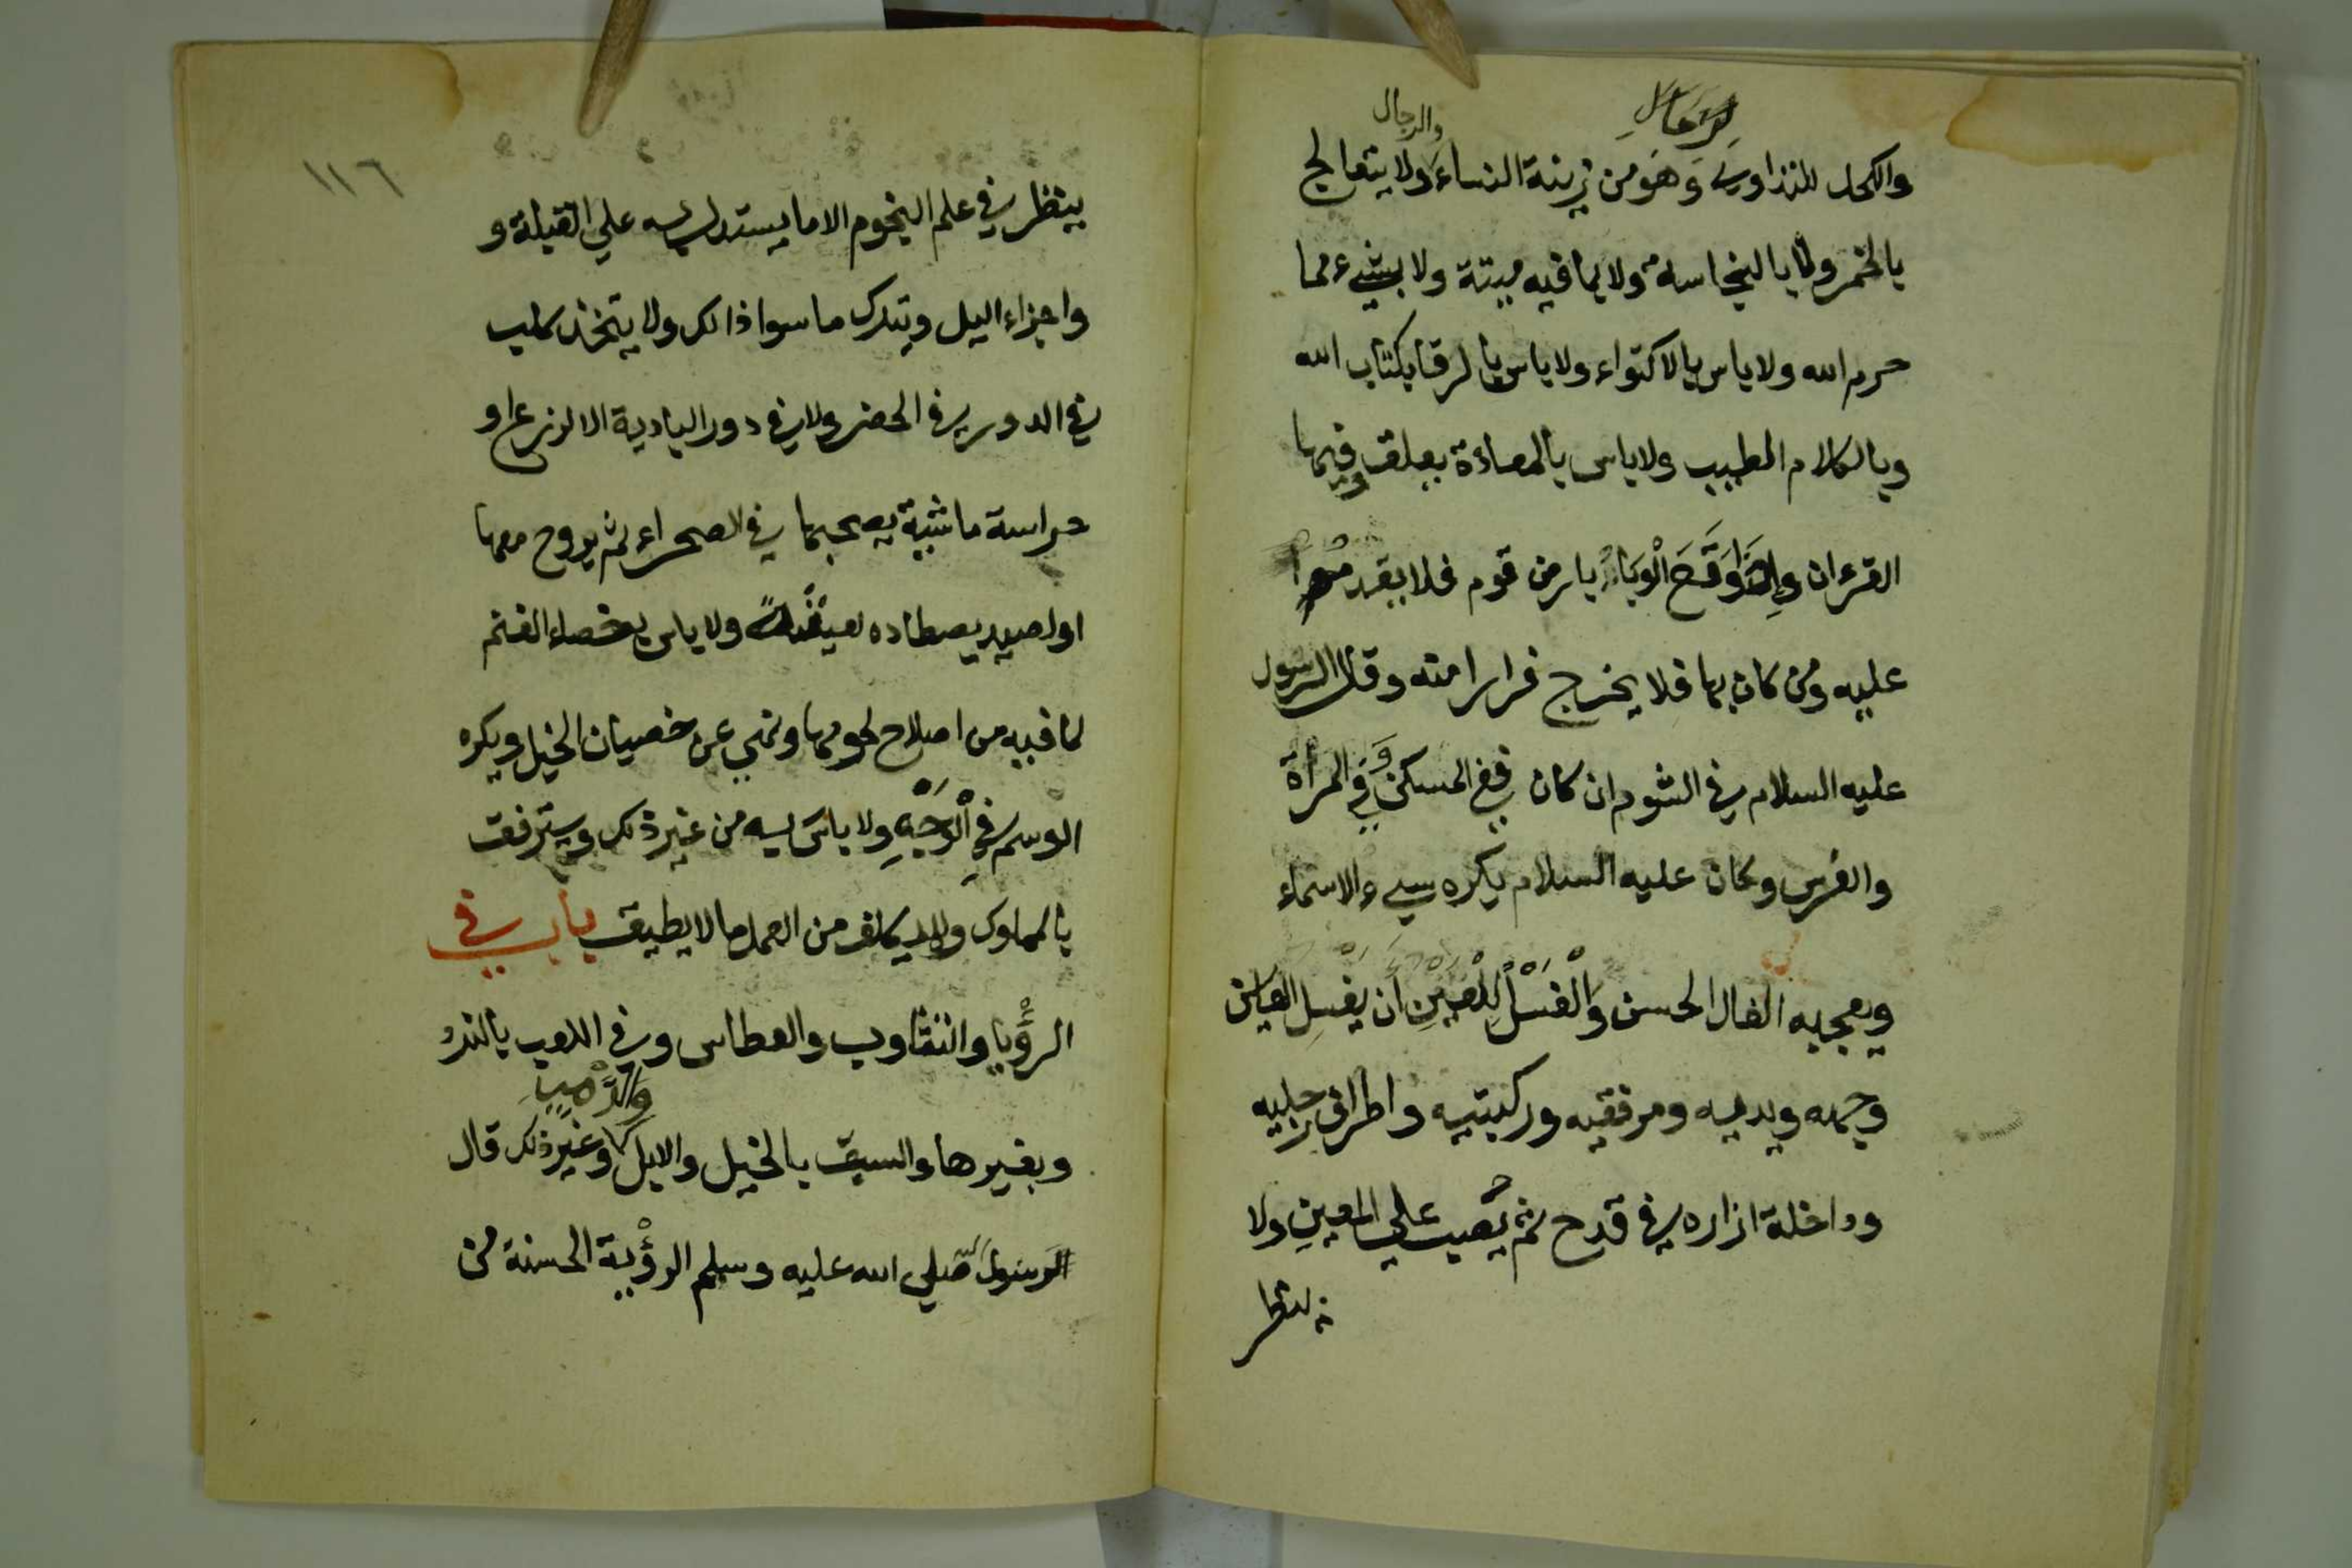 والرجال
والكحل للتداوي وَهَومن زينة النساء ولا يتعالج
بالخمر ولا بالنجاسة ولا بما فيه ميتة ولا بشيء مما
حرم الله ولا باس بالاكتواء ولا باس بالرقا بكتاب الله
وبالكلام الطيب ولا باس بالمعاذة تعلق وفيها
القرءان وإذا وَقَعَ الْوَبَاءُ بارض قوم فلا يقدم
عليه ومن كان بها فلا يخرج فرارا منه وقال الرسول
عليه السلام في الشوم ان كان ففي المسكن وَفي المرأة
والفرس وكان عليه السلام يكره سيء الاسماء
ويعجبه الفال الحسن وَالْغَسْلُ لِلْعَيْنِ أن يغسل العاين
وجهه ويديه ومرفقيه وركبتيه واطراف رجليه
وداخلة ازاره في قدح ثم يُصب على المعين ولا
ينظر
١١٦
ينظر في علم النجوم الا ما يستدل به على القبلة و
واجزاء اليل ويترك ما سوا ذالك ولا يتخذ كلب
في الدور في الحضر ولا في دور البادية الا لزرع او
حراسة ماشية يصحبها في الصحراء ثم يروح معها
او لصيد يصطاده لعيشه ولا باس بخصاء الغنم
لما فيه من اصلاح لحومها ونهي عن خصيان الخيل ويكره
الوسم في الْوَجْهِ ولا باسَ به من غير ذلك ويترفق
بالمملوك ولا يكلف من العمل ما لا يطيق باب في
الرؤْيا والتثاوب والعطاس وفي اللعب بالنرد
وَالرَّمْيِ
وبغيرها والسبق بالخيل والابل وغير ذلك قال
الرسول صلي الله عليه وسلم الرؤْية الحسنة من